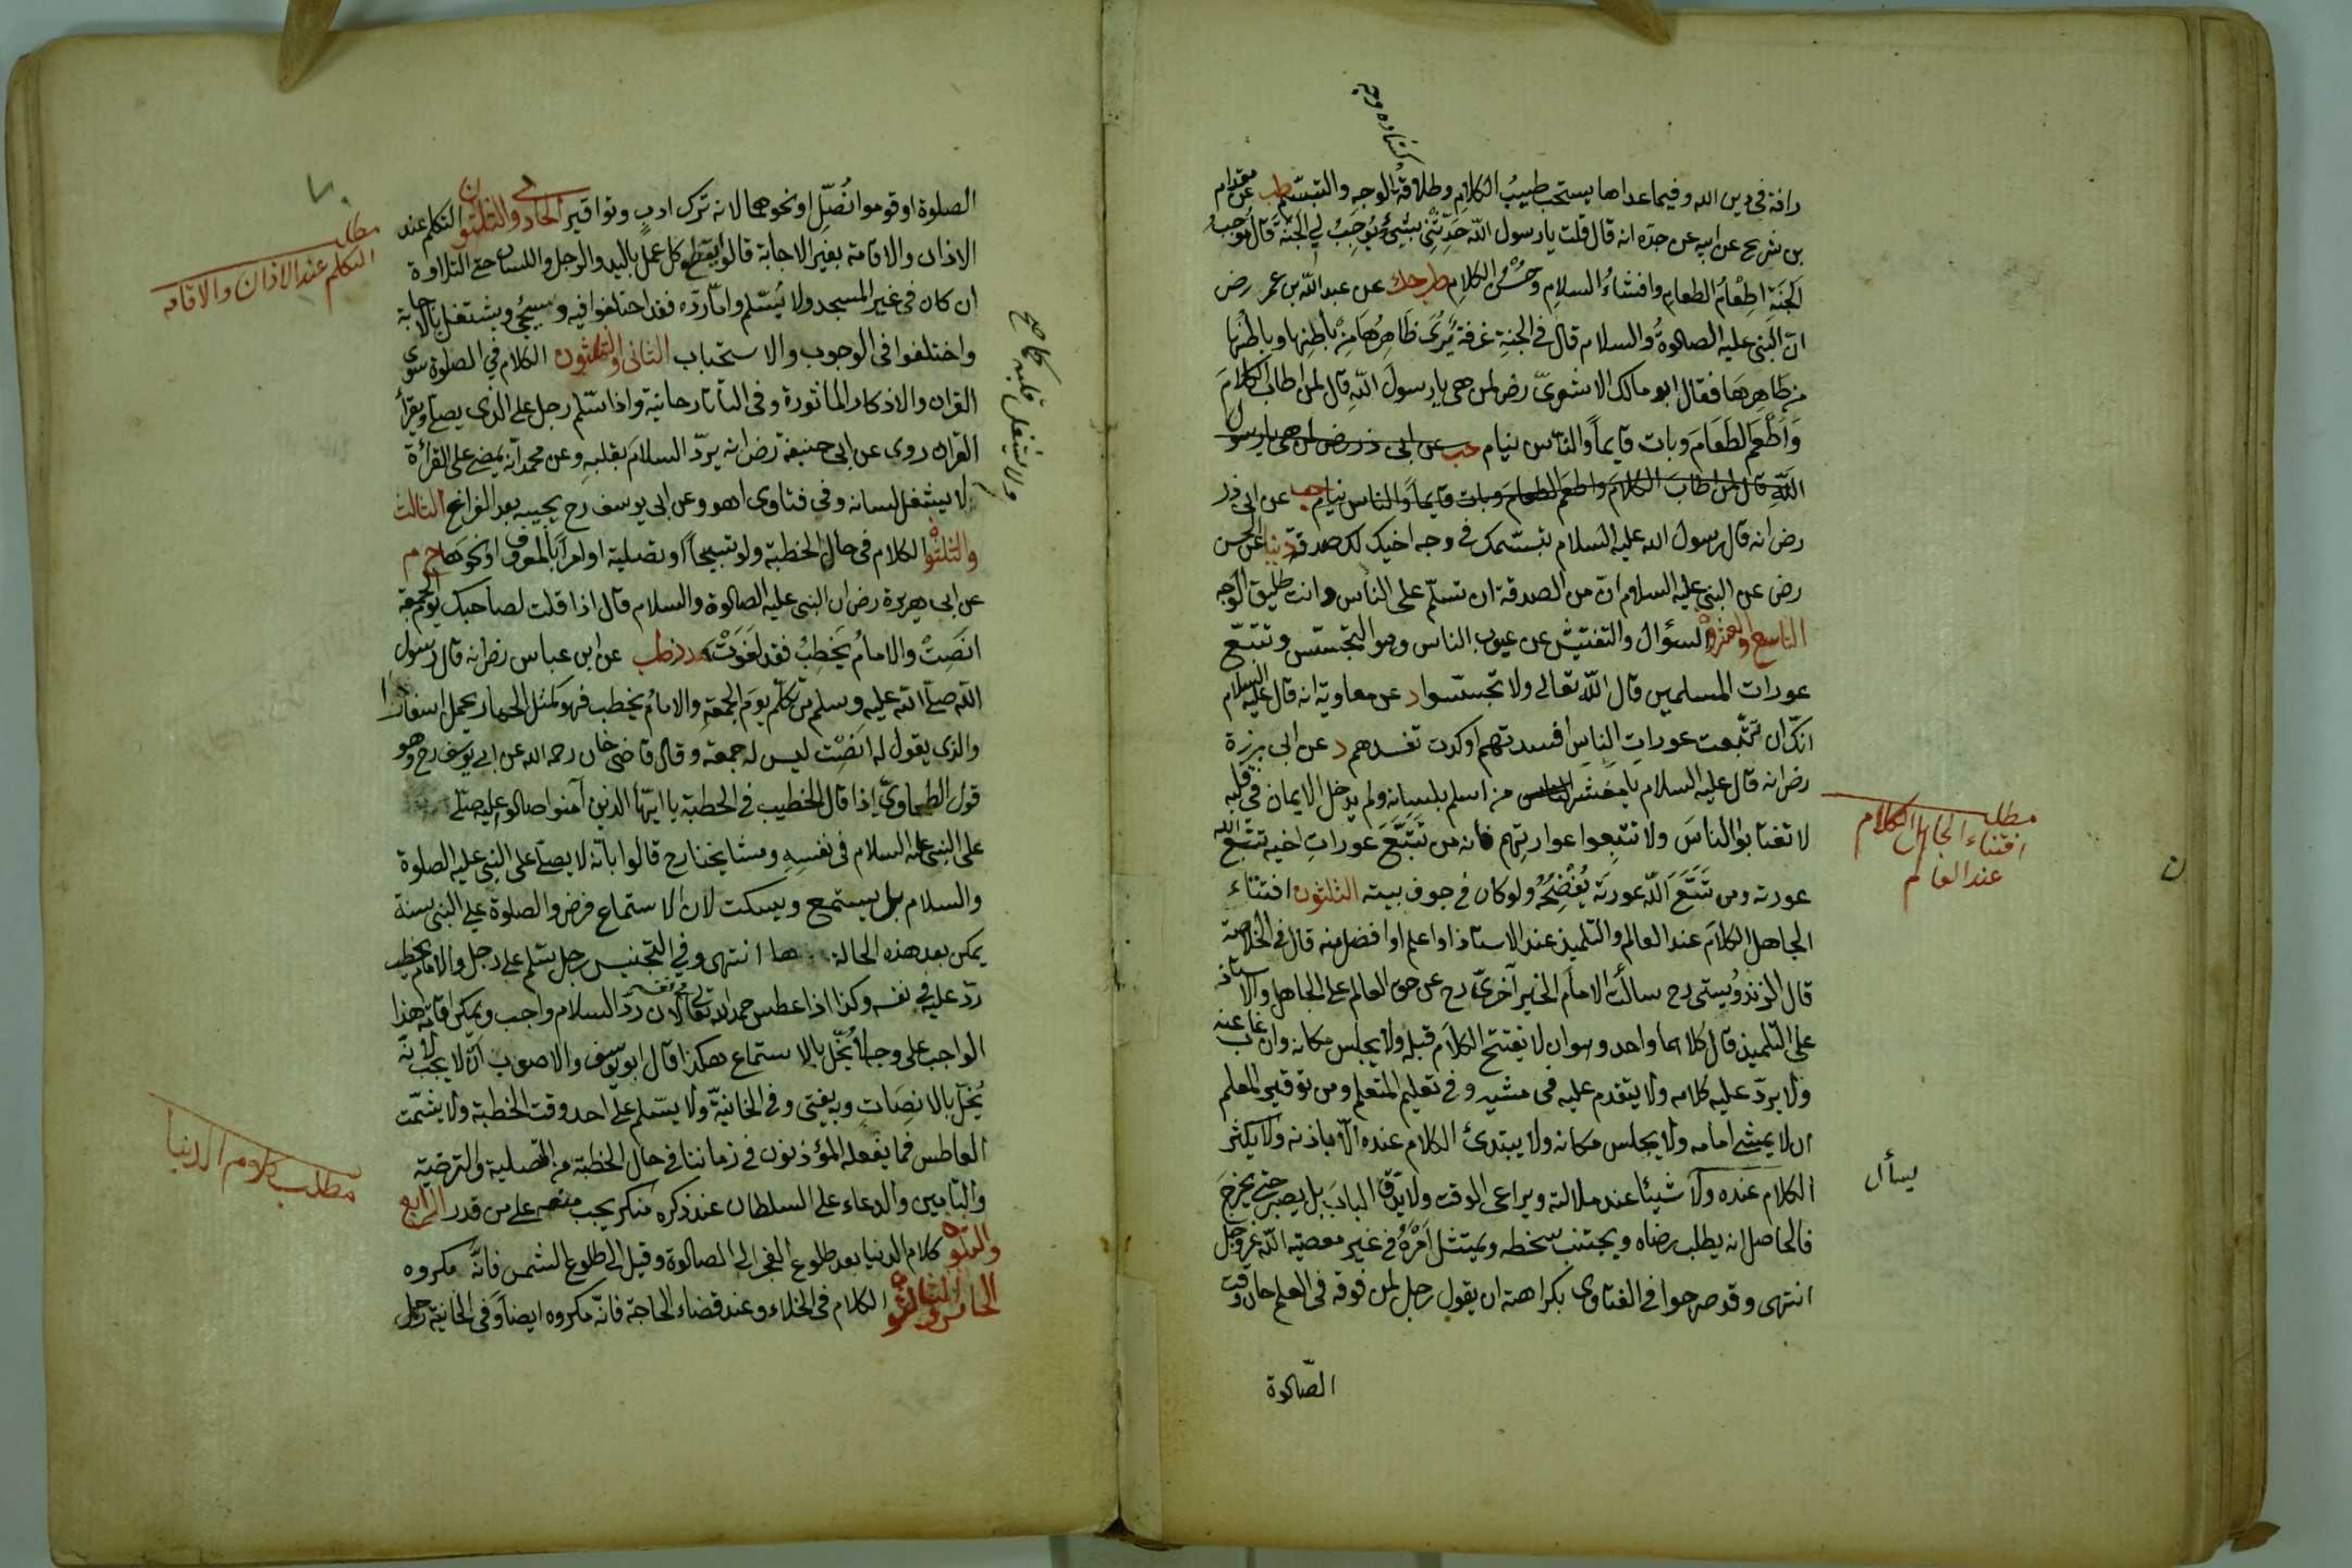 كشاده وجه
رافة في دين الله وفيما عداها يستحب طيب الكلام وطلاقة الوجه والتبسّم طب عن مقدام
بن شريح عن ابيه عن جدّه انه قال قلت يا رسول الله حَدِّثْنِي بشئ يُوجِبُ لي الجَنّة قال مُوجِبُ
الجَنّةِ اِطْعَامُ الطعامِ وافشاءُ السلامِ وحُسْنُ الكلامِ طب حك عن عبد الله بن عمر رض
انّ النبي عليه الصلوةُ والسلام قال في الجنةِ غرفة يُرَى ظَاهِرُهَا مِنْ باطِنِها وباطنُها
من ظَاهِرِهَا فقال ابو مالك الاشعريّ رض لمن هي يا رسولَ اللهِ قال لمن اطابَ الكلامَ
وَاَطْعَمَ الطَعَامَ وبات قايماً والنّاس نيام حب عن ابى ذر رض لمن هي يا رسول
الله قال لمن اطابَ الكلامَ واطعَمَ الطعامَ وبات قايماً والناس نيام حب عن ابى ذر
رض انه قال رسول الله عليه السلام تبسّمك في وجه اخيك لك صدقة دنيا عن الحسن
رض عن النبي عليه السلام انّ من الصدقة ان تسلّم على الناس وانت طليق الوجه
التاسع والعشرون السؤال والتفتيش عن عيوب الناس وهو التجسّس وتتبّع
عورات المسلمين قال الله تعالى ولا تجسّسوا د عن معاوية انه قال عليه السلام
انّك ان تتّبعت عوراتِ الناسِ افسدتهم او كدت تفسدهم د عن ابى برزة
رض انه قال عليه السلام يا معشر من اسلم بلسانه ولم يدخل الايمان في قلبه
لا تغتابوا الناسَ ولا تتبعوا عوراتهم فانه من تَتَبَّعَ عوراتِ اخيه تتبّع الله
عورته ومن تَتَبَّعَ اللّه عورتَه يُفْضِحُهُ ولو كان في جوف بيته الثلثون افتتاء
الجاهل الكلامَ عند العالم والتلميذ عند الاستاذ او اعلم او افضل منه قال في الخلاصة
قال الزندويستى رح سألت الامامَ الخيرآخزىّ رح عن حق العالم على الجاهل والاستاذ
على التلميذ قال كلاهما واحد وهو ان لا يفتتح الكلامَ قبله ولا يجلس مكانه وان غاب عنه
ولا يردّ عليه كلامه ولا يتقدم عليه في مشيه وفي تعليم المتعلم ومن توقير المعلم
ان لا يمشي امامه ولا يجلس مكانه ولا يبتدئ الكلام عنده الّا باذنه ولا يكثر
الكلام عنده ولا شيئا عند ملالته ويراعى الوقت ولا يدّق البابَ بل يصبر حتى يخرجَ
فالحاصل انه يطلب رضاه ويجتنب سخطه ويمتثل اَمْرَهُ في غير معصية الله عز وجل
انتهى وقد صرحوا في الفتاوى بكراهته ان يقول رجل لمن فوقه في العلم حان وقت
الصّلوة
مطلب
افتتاء الجاهل الكلام
عند العالم
يسأل
ن
الصلوة او قوموا نُصَلِّ او نحوهما لانه ترك ادبٍ وتواقير الحادى والثلثون التكلم عند
الاذان والاقامة بغير الاجابة قالوا يقطع كل عمل باليد والرجل واللسان حتى التلاوة
ان كان في غير المسجد ولا يُسَلم وامّا ردّه فقد اختلفوا فيه وسيجئ ويشتغل بالاجابة
واختلفوا في الوجوب والاستحباب الثانى والثلثون الكلام في الصلوة سوى
القران والاذكار المأثورة وفي التاتارخانية واذا سلّم رجل على الذى يصلّى ويقرأ
القران روى عن ابى حنيفة رض انه يردّ السلامَ بقلبه وعن محمد انه يمضى على القرائة
لا يشغل لسانه وفي فتاوى اهو وعن ابى يوسف رح يجيبه بعد الفراغ الثالث
والثلثون الكلام في حال الخطبة ولو تسبيحاً او تصلية او امراً بالمعروف او نحوها خ م
عن ابى هريرة رض ان النبي عليه الصلوة والسلام قال اذا قلت لصاحبك يوم الجمعة
انصِتْ والامامُ يَخطِبُ فقد لَغَوْتَ حد ز طب عن ابن عباس رض انه قال رسول
الله صلّى الله عليه وسلم من تكلم يومَ الجمعة والامامُ يخطب فهو كمثل الحمار يحمل اسفارًا
والذى يقول له انصِتْ ليس له جمعة وقال قاضى خان رحمه الله عن ابى يوسف رح وهو
قول الطحاوىّ اذا قال الخطيب في الخطبة يا ايّها الذين آمنوا صلوا عليه صلّى
على النبي عليه السلام في نفسِهِ ومشايخنا رح قالوا بانّه لا يصلّى على النبي عليه الصلوة
والسلام بل يستمع ويسكت لان الاستماع فرض والصلوة على النبي سنة
يمكن بعد هذه الحالة ها انتهى وفي التجنيس رجل سلم على رجل والامام يخطب
ردّ عليه في نفسه وكذا اذا عطس حمد الله تعالى في نفسه لان ردّ السلام واجب ويمكن اقامة هذا
الواجب على وجه لا يُخلّ بالاستماع هكذا قال ابو يوسف والاصوب انّه لا يجب لانّه
يُخلّ بالانصِاتِ وبه يفتى وفي الخانيّة ولا يسّلم على احد وقت الخطبة ولا يشمّت
العاطس فما يفعله المؤذنون في زماننا في حال الخطبة من التصلية والترضية
والتامين والدعاء على السلطان عند ذكره منكر يجب منعه على من قدر الرابع
والثلثون كلام الدنيا بعد طلوع الفجر الى الصلوة وقيل الى طلوع الشمس فانّه مكروه
الخامس والثلثون الكلام في الخلاء وعند قضاء الحاجة فانّه مكروه ايضاً وفي الخانية رجل
مطلب
التكلم عند الاذان والاقامه
ولا يشغل قلبه صح
مطلب كلام الدنيا